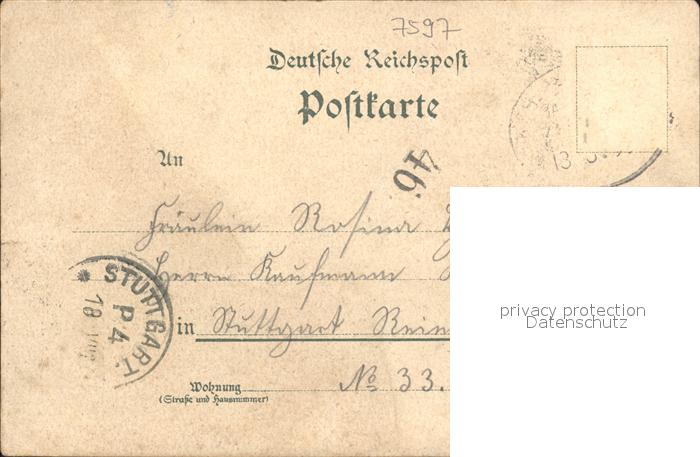 7597
Deutsche Reichspost
Postkarte
An
46.
Fräulein Rosina
Herrn Kaufmann
in Stuttgart
No 33.
Wohnung
(Straße und Hausnummer)
STUTTGART.
P 4
18
13
privacy protection
Datenschutz